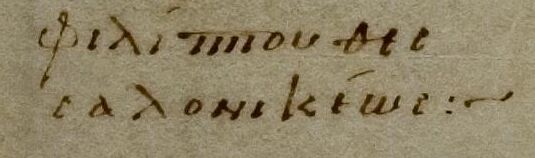 φιλίππου θεσ
σαλονικέως:~